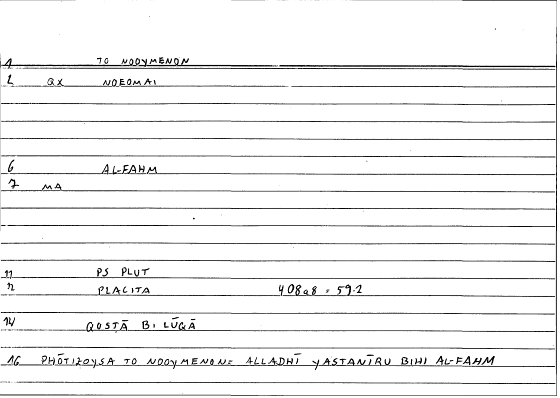 1 TO NOOYMENON
2 QX NOEOMAI
6 AL-FAHM
7 MA
11 PS PLUT
12 PLACITA 408a8 = 59.2
14 QOSṬĀ B. LŪQĀ
16 PHŌTIZOYSA TO NOOYMENON = ALLADHĪ YASTANĪRU BIHI AL-FAHM